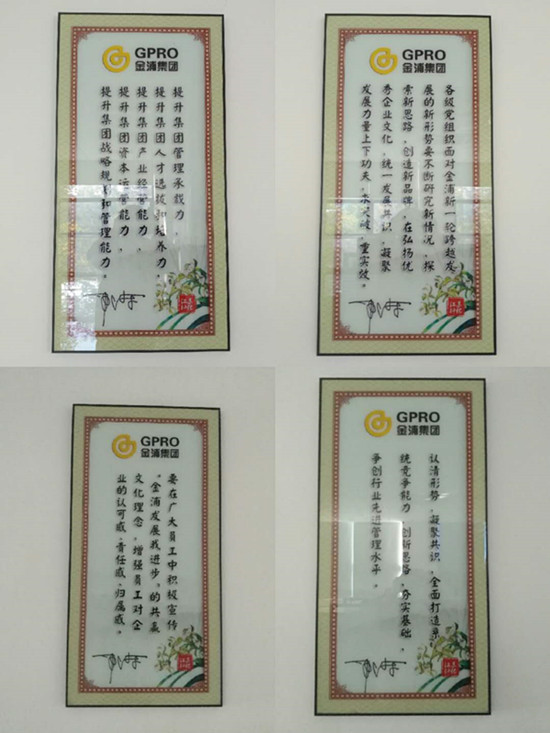 GPRO
金浦集团
提升集团管理承载力，
提升集团人才选拔和培养力，
提升集团产业经营能力，
提升集团资本运营能力，
提升集团战略规划和管理能力。
GPRO
金浦集团
各级党组织面对金浦新一轮跨越发
展的新形势要不断研究新情况，探
索新思路，创造新品牌，在弘扬优
秀企业文化，统一发展共识，凝聚
发展力量上下功夫，求突破，重实效。
GPRO
金浦集团
要在广大员工中积极宣传
“金浦发展我进步”的共赢
文化理念，增强员工对企
业的认可感、责任感、归属感。
GPRO
金浦集团
认清形势，凝聚共识，全面打造系
统竞争能力，创新思路，夯实基础，
争创行业先进管理水平。